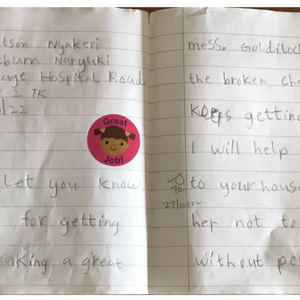 lson Nyakeri
burn Nanyuki
age Hospital Road
2 TK
/22
Great
Job!
let you know
for getting
aking a great
mess. Goldiloc
the broken che
Keeps gettin
I will help
to your house
her not to
without pe